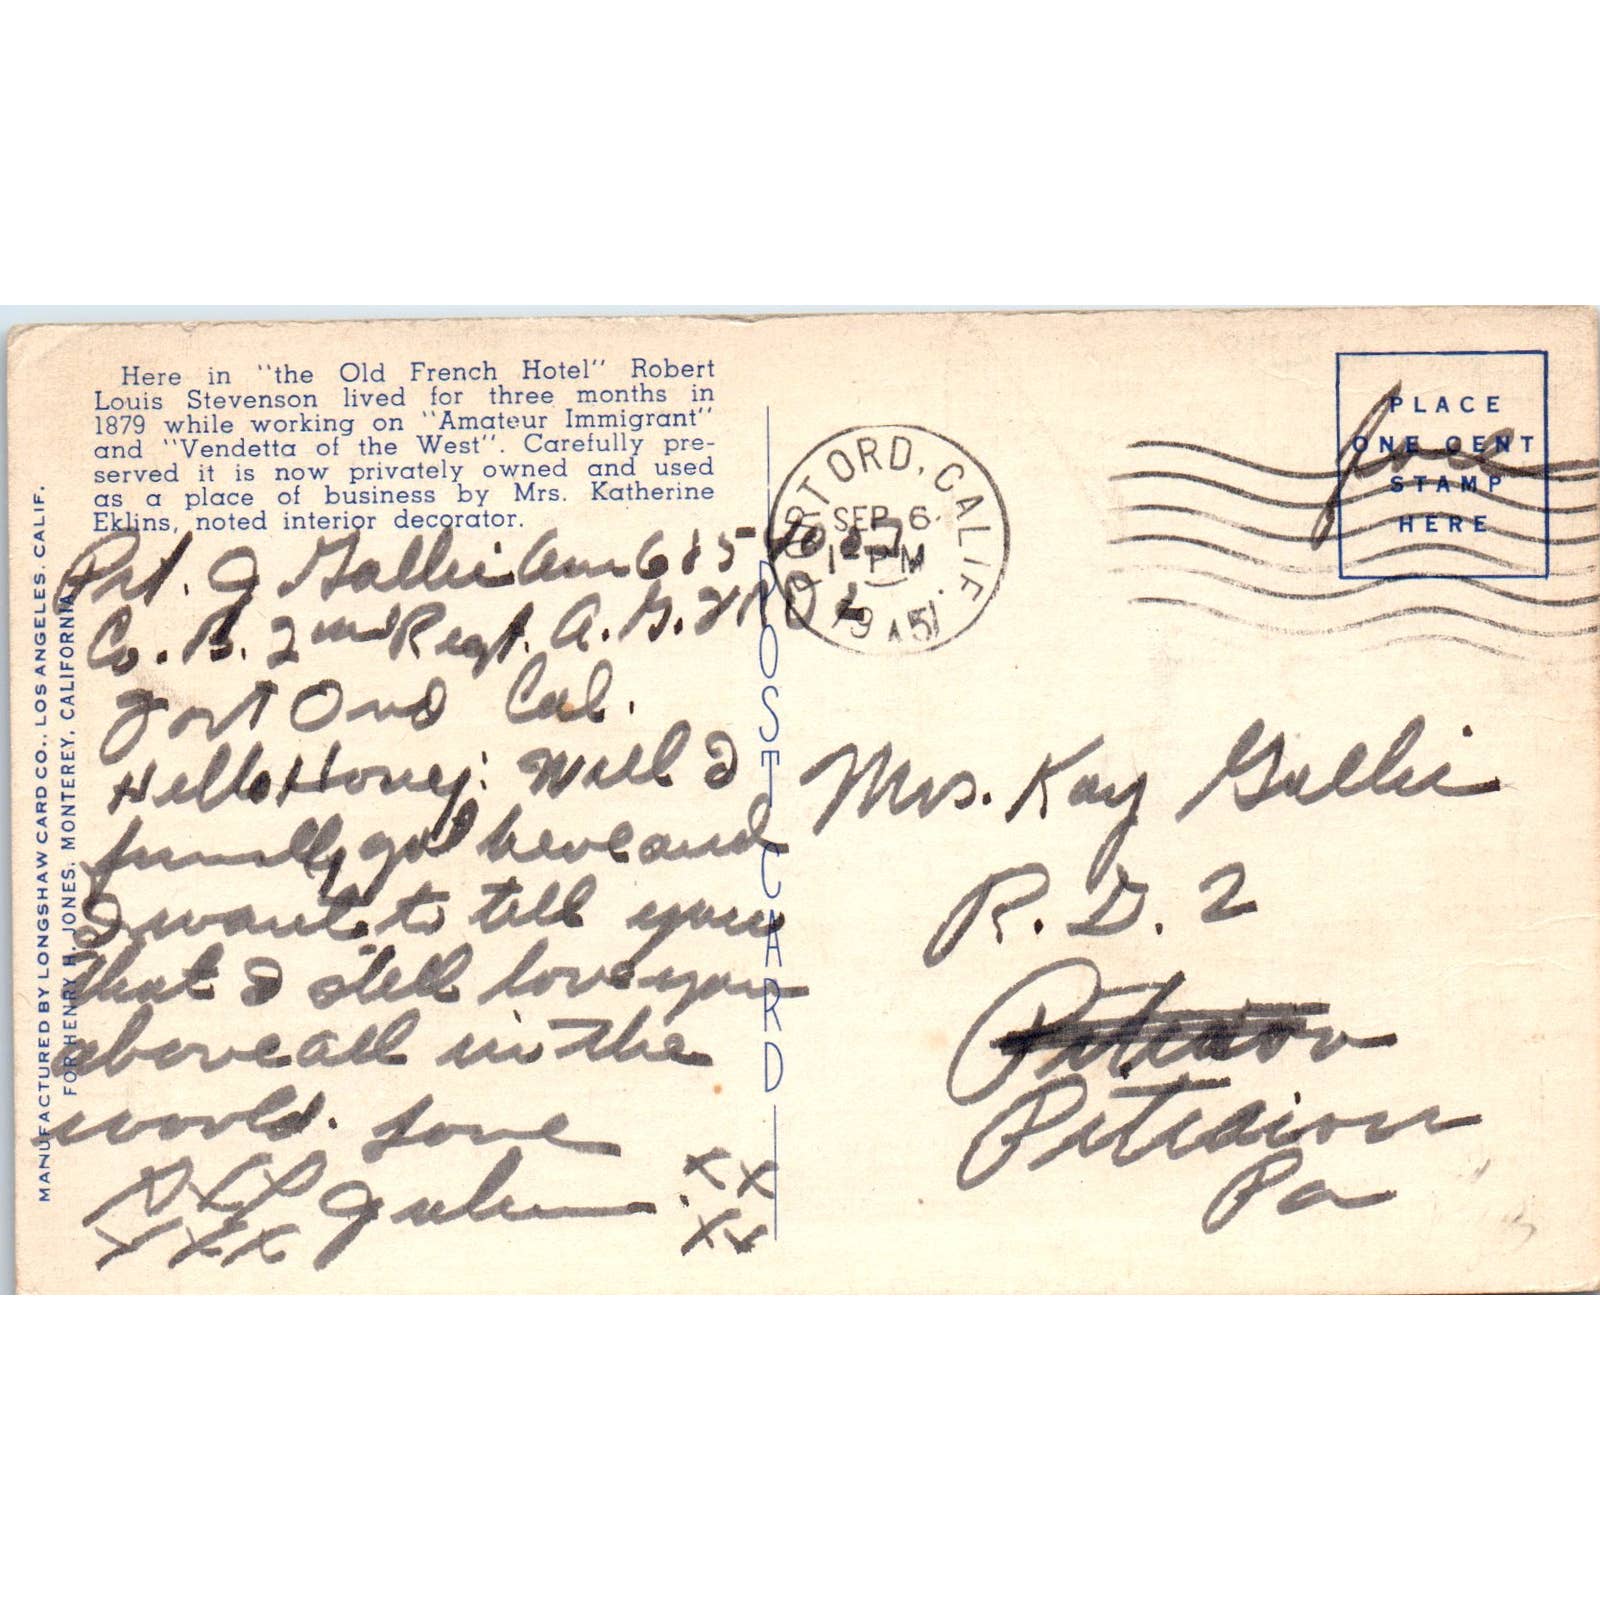 Here in "the Old French Hotel" Robert
Louis Stevenson lived for three months in
1879 while working on "Amateur Immigrant"
and "Vendetta of the West". Carefully pre-
served it is now privately owned and used
as a place of business by Mrs. Katherine
Eklins, noted interior decorator.
MANUFACTURED BY LONGSHAW CARD CO., LOS ANGELES, CALIF.
FOR HENRY H. JONES, MONTEREY, CALIFORNIA
Pvt. J Gallie
Co. B. 2nd Regt. A. G.
Fort Ord Cal.
Hello Honey: Well I
finally got here and
I want to tell you
that I still love you
above all in the
world. Love
XXX Julien. XX
XXX XX
POST CARD
FORT ORD, CALIF.
SEP 6
1 - PM
1951
free
PLACE
ONE CENT
STAMP
HERE
Mrs. Kay Gallie
R. D. 2
Pa